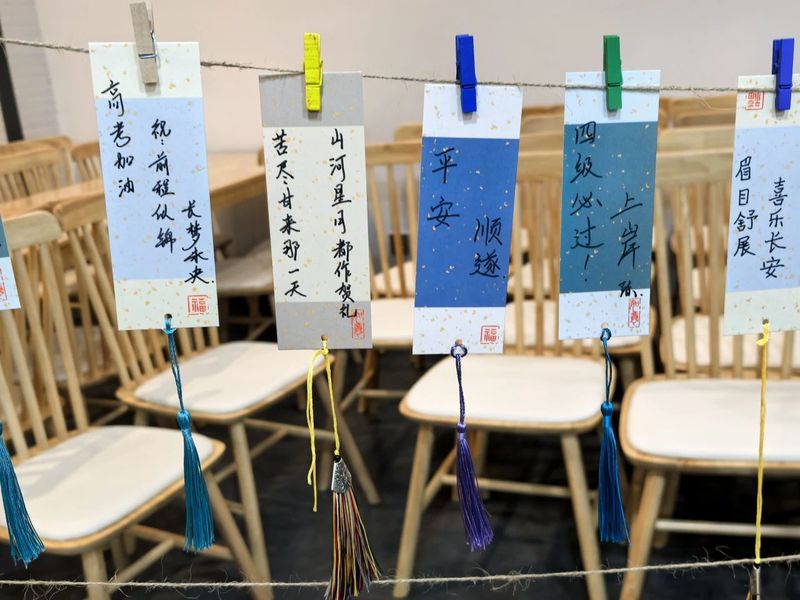 高考加油
祝:前程似锦
长梦未央
福
苦尽甘来那一天
山河星月都作贺礼
平安
顺遂
福
四级必过!
上岸
眉目舒展
喜乐长安